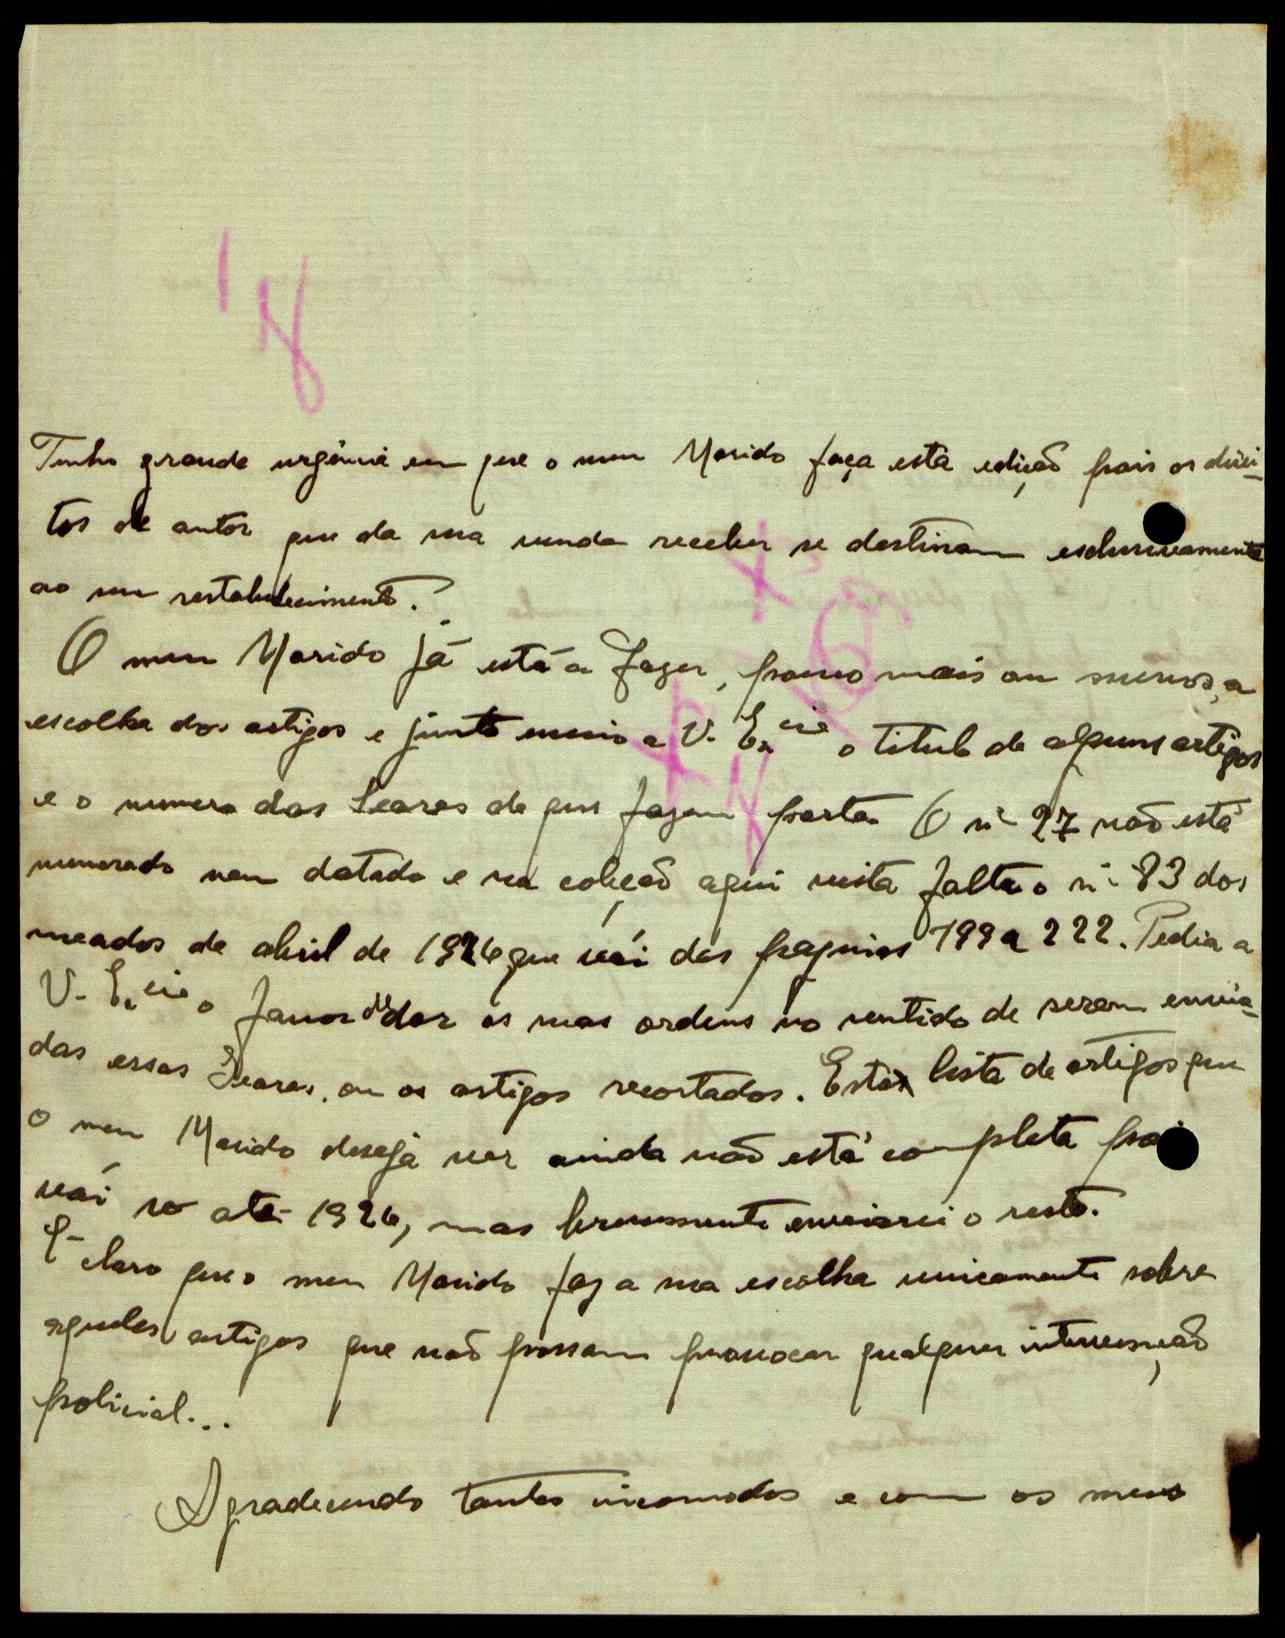 Tenho grande urgência em que o meu Marido faça esta edição pois os direi-
tos de autor que da sua venda receber se destinam exclusivamente
ao seu restabelecimento.
O meu Marido já está a fazer, pouco mais ou menos, a
escolha dos artigos e junto envio a V. Ex.cia o titulo de alguns artigos
e o numero das Searas de que fazem parte. O nº 27 não está
numerado nem datado e na coleção aqui nesta falta o nº 83 dos
meados de abril de 1926 que vái das paginas 199 a 222. Pedia a
V. Ex.cia o favor de dar as suas ordens no sentido de serem envia-
das essas Searas, ou os artigos recortados. Esta lista de artigos que
o meu Marido deseja ver ainda não está completa pois
vái só até 1926, mas brevemente enviarei o resto.
É claro que o meu Marido faz a sua escolha unicamente sobre
aqueles artigos que não possam provocar qualquer intervenção
policial...
Agradecendo tantos incomodos e com os meus